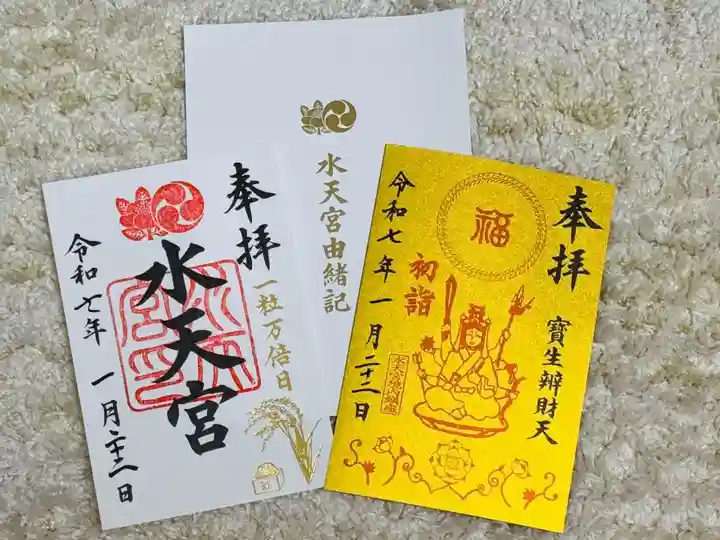 水天宮由緒記
奉拝
一粒万倍日
水天宮
令和七年 一月二十二日
奉拝
寶生辨財天
福
初詣
令和七年 一月二十二日